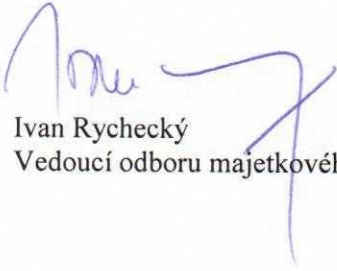 Ivan Rychecký
Vedoucí odboru majetkovéh